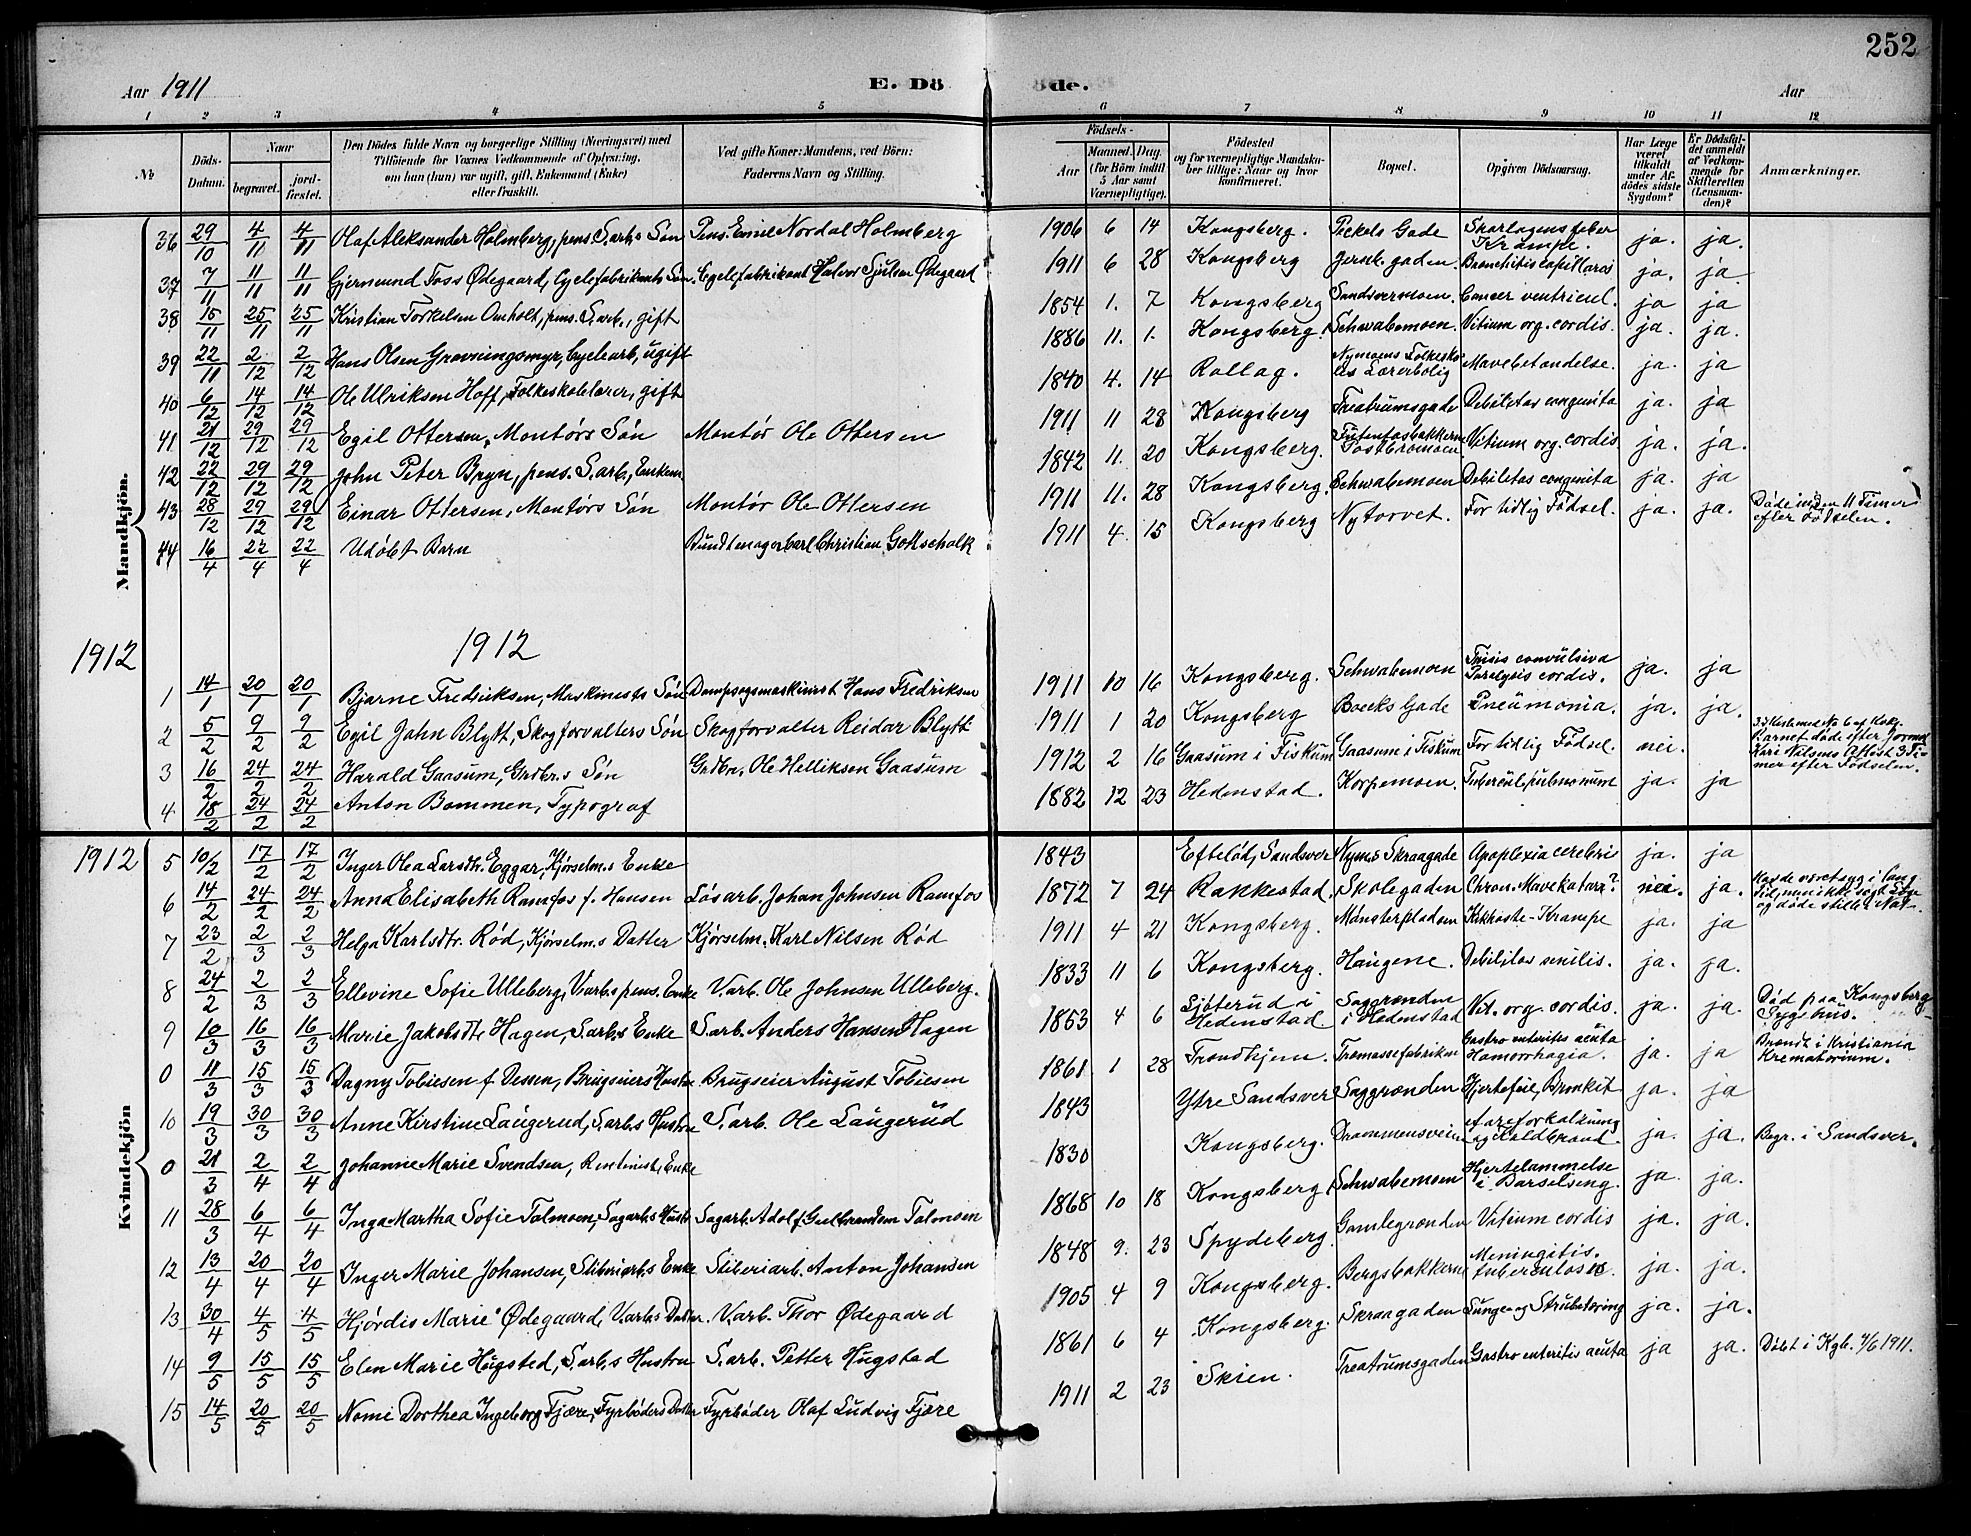 252
Aar 1911 E. Dö de. Aar
1 2 3 4 5 6 7 8 9 10 11 12
No
Döds-Datum.
Naar
begravet.
jord-fæstet.
Den Dödes fulde Navn og borgerlige Stilling (Næringsvei) med
Tilföiende for Voxnes Vedkommende af Oplysning,
om han (hun) var ugift, gift, Enkemand (Enke)
eller fraskilt.
Ved gifte Koner: Mandens, ved Börn:
Faderens Navn og Stilling.
Födsels-
Aar
Maaned. Dag.
(for Börn indtil
5 Aar samt
Værnepligtige).
Födested
og for værnepligtige Mandska-
ber tillige: Naar og hvor
konfirmeret.
Bopæl.
Opgiven Dödsaarsag.
Har Læge
været
tilkaldt
under Af-
dödes sidste
Sygdom?
Er Dödsfal-
det anmeldt
af Vedkom-
mende for
Skifteretten
(Lensman-
den)?
Anmærkninger.
Mandkjön.
36 29/10 4/11 4/11 Olaf Aleksander Holmberg, pens. S.arb.s Søn Pens. Emil Nordal Holmberg 1906 6 14 Kongsberg. Peckels Gade Skarlagensfeber Krampe. ja. ja.
37 7/11 11/11 11/11 Gjermund Foss Ødegaard, Cyclefabrikants Søn. Cyclefabrikant Halvor Ødegaard 1911 6 28 Kongsberg gaden. Bronchitis ja. ja
38 15/11 25/11 25/11 Kristian Torkelsen Omholt, pens. S.arb., gift 1854 1. 7 Kongsberg Sandsvermoen. Cancer ventricul. ja ja
39 22/11 2/12 2/12 Hans Olsen Gravningsmyr, Cyclearb., ugift 1886 11. 1. Kongsberg. Schwabemoen. Vitium org. cordis. ja. ja.
40 6/12 14/12 14/12 Ole Ulriksen Hoff, Folkeskolelærer, gift 1840 4. 14 Rollag. Nymoens Folkesko-les Lærerbolig Mavebetændelse. ja. ja
41 21/12 29/12 29/12 Egil Ottersen, Montørs Søn Montør Ole Ottersen 1911 11 28 Kongsberg Treatrumsgade Debilitas congenita ja. ja
42 22/12 29/12 29/12 John Peter Bryn, pens. S.arb., Enkem. 1842 11. 20 Kongsberg. Vitium org. cordis ja. ja.
43 28/12 29/12 29/12 Einar Ottersen, Montørs Søn Montør Ole Ottersen 1911 11. 28 Kongsberg. Schwabemoen Debilitas congenita ja. ja
44 16/4 22/4 22/4 Udøbt Barn Buntmager Carl Christian Gottschalk 1911 4 15 Kongsberg Nytorvet. For tidlig Fødsel. ja. ja. Døde 11 Timer efter Fødselen.
1912
1912
1 14/1 20/1 20/1 Bjarne Fredriksen, Maskinists Søn Dampsagsmaskinist Hans Fredriksen 1911 10 16 Kongsberg. Schwabemoen Tusis convulsiva Paralysis cordis. ja. ja
2 5/2 9/2 9/2 Egil John Blytt, Skogforvalters Søn Skogforvalter Reidar Blytt 1911 1 20 Kongsberg Boecks Gade Pneumonia. ja. ja.
3 16/2 24/2 24/2 Harald Gaasum, Grdbr.s Søn Grdbr. Ole Helliksen Gaasum 1912 2 16 Gaasum i Fiskum Gaasum i Fiskum For tidlig Fødsel. nei. Barnet døde efter Jormod Kari Nilsens Attest 3 Ti-mer efter Fødselen.
4 18/2 24/2 24/2 Anton Bommen, Typograf 1882 12 23 Hedenstad. Korpemoen. Tubercul. pulmonum ja. ja
Kvindekjön
1912
5 10/2 17/2 17/2 Inger Olea Larsdtr. Eggar, Kjørselm.s Enke 1843 Efteløt, Sandsver Nym.s Skraagade Apoplexia cerebri ja. ja
6 14/2 24/2 24/2 Anna Elisabeth Ramfos f. Hansen Løsarb. Johan Johnsen Ramfos 1872 7 24 Rakkestad. Skolegaden Chron. Mavekatarr? nei. ja. Havde været syg i lang Tid, men ikke søgt Læge og døde stille Nat.
7 23/2 2/3 2/3 Helga Karlsdtr. Rød, Kjørselm.s Datter Kjørselm. Karl Nilsen Rød 1911 4 21 Kongsberg. Mønsterpladsen Kikhoste-Krampe ja. ja
8 24/2 2/3 2/3 Ellevine Sofie Ulleberg, V.arb.s pens. Enke V.arb. Ole Johnsen Ulleberg. 1833 11 6 Kongsberg. Haugene. Debilitas senilis. ja. ja.
9 10/3 16/3 16/3 Marie Jakobsdtr. Hagen, S.arb.s Enke S.arb. Anders Hansen Hagen 1853 4 6 i Hedenstad Saggrænden i Hedenstad Vit. org. cordis. ja. ja. Død paa Kongsberg Sygehus.
0 11/3 15/3 15/3 Dagny Tobiesen f. Dessen, Brugseiers Hustru Brugseier August Tobiesen 1861 1 28 Trondhjem. Træmassefabriken Gastro enterites acuta Hæmorrhagia. ja. ja Brændt i Kristiania Krematorium.
10 19/3 30/3 30/3 Anne Kirstine Laugerud, S.arb.s Hustru S.arb. Ole Laugerud 1843 Ytre Sandsver Saggrænden Hjertefeil, Bronkit ja. ja
0 21/3 2/4 2/4 Johanne Marie Svendsen, Rentenists Enke 1830 Kongsberg. Drammensveien Aareforkalkning og Koldbrand. ja. ja. Begr. i Sandsver.
11 28/3 6/4 6/4 Inga Martha Sofie Talmoen, Sagarb.s Hustr. Sagarb. Adolf Gulbrandsen Talmoen 1868 10 18 Kongsberg Schwabemoen Hjertelammelse i Barselseng. ja. ja.
12 13/4 20/4 20/4 Inger Marie Johansen, Sliberiarb.s Enke Sliberiarb. Anton Johansen 1848 9. 23 Spydeberg. Gamlegrænden Vitium cordis ja. ja.
13 30/4 4/5 4/5 Hjördis Marie Ødegaard, V.arb.s Datter. V.arb. Thor Ødegaard 1905 4 9 Kongsberg. Bergsbakkerne Meningitis tuberculosis. ja. ja.
14 9/5 15/5 15/5 Elen Marie Hugsted, S.arb.s Hustru S.arb. Petter Hugstad 1861 6 4 Kongsberg. Skraagaden Lunge- og Strubetæring ja. ja.
15 14/5 20/5 20/5 Nomi Dorthea Ingeborg Fjære, Fyrbøders Datter Fyrbøder Olaf Ludvig Fjære 1911 2 23 Skien. Treatrumsgaden Gastro enteritis acuta ja ja. Døbt i Kgb. 4/6 1911.